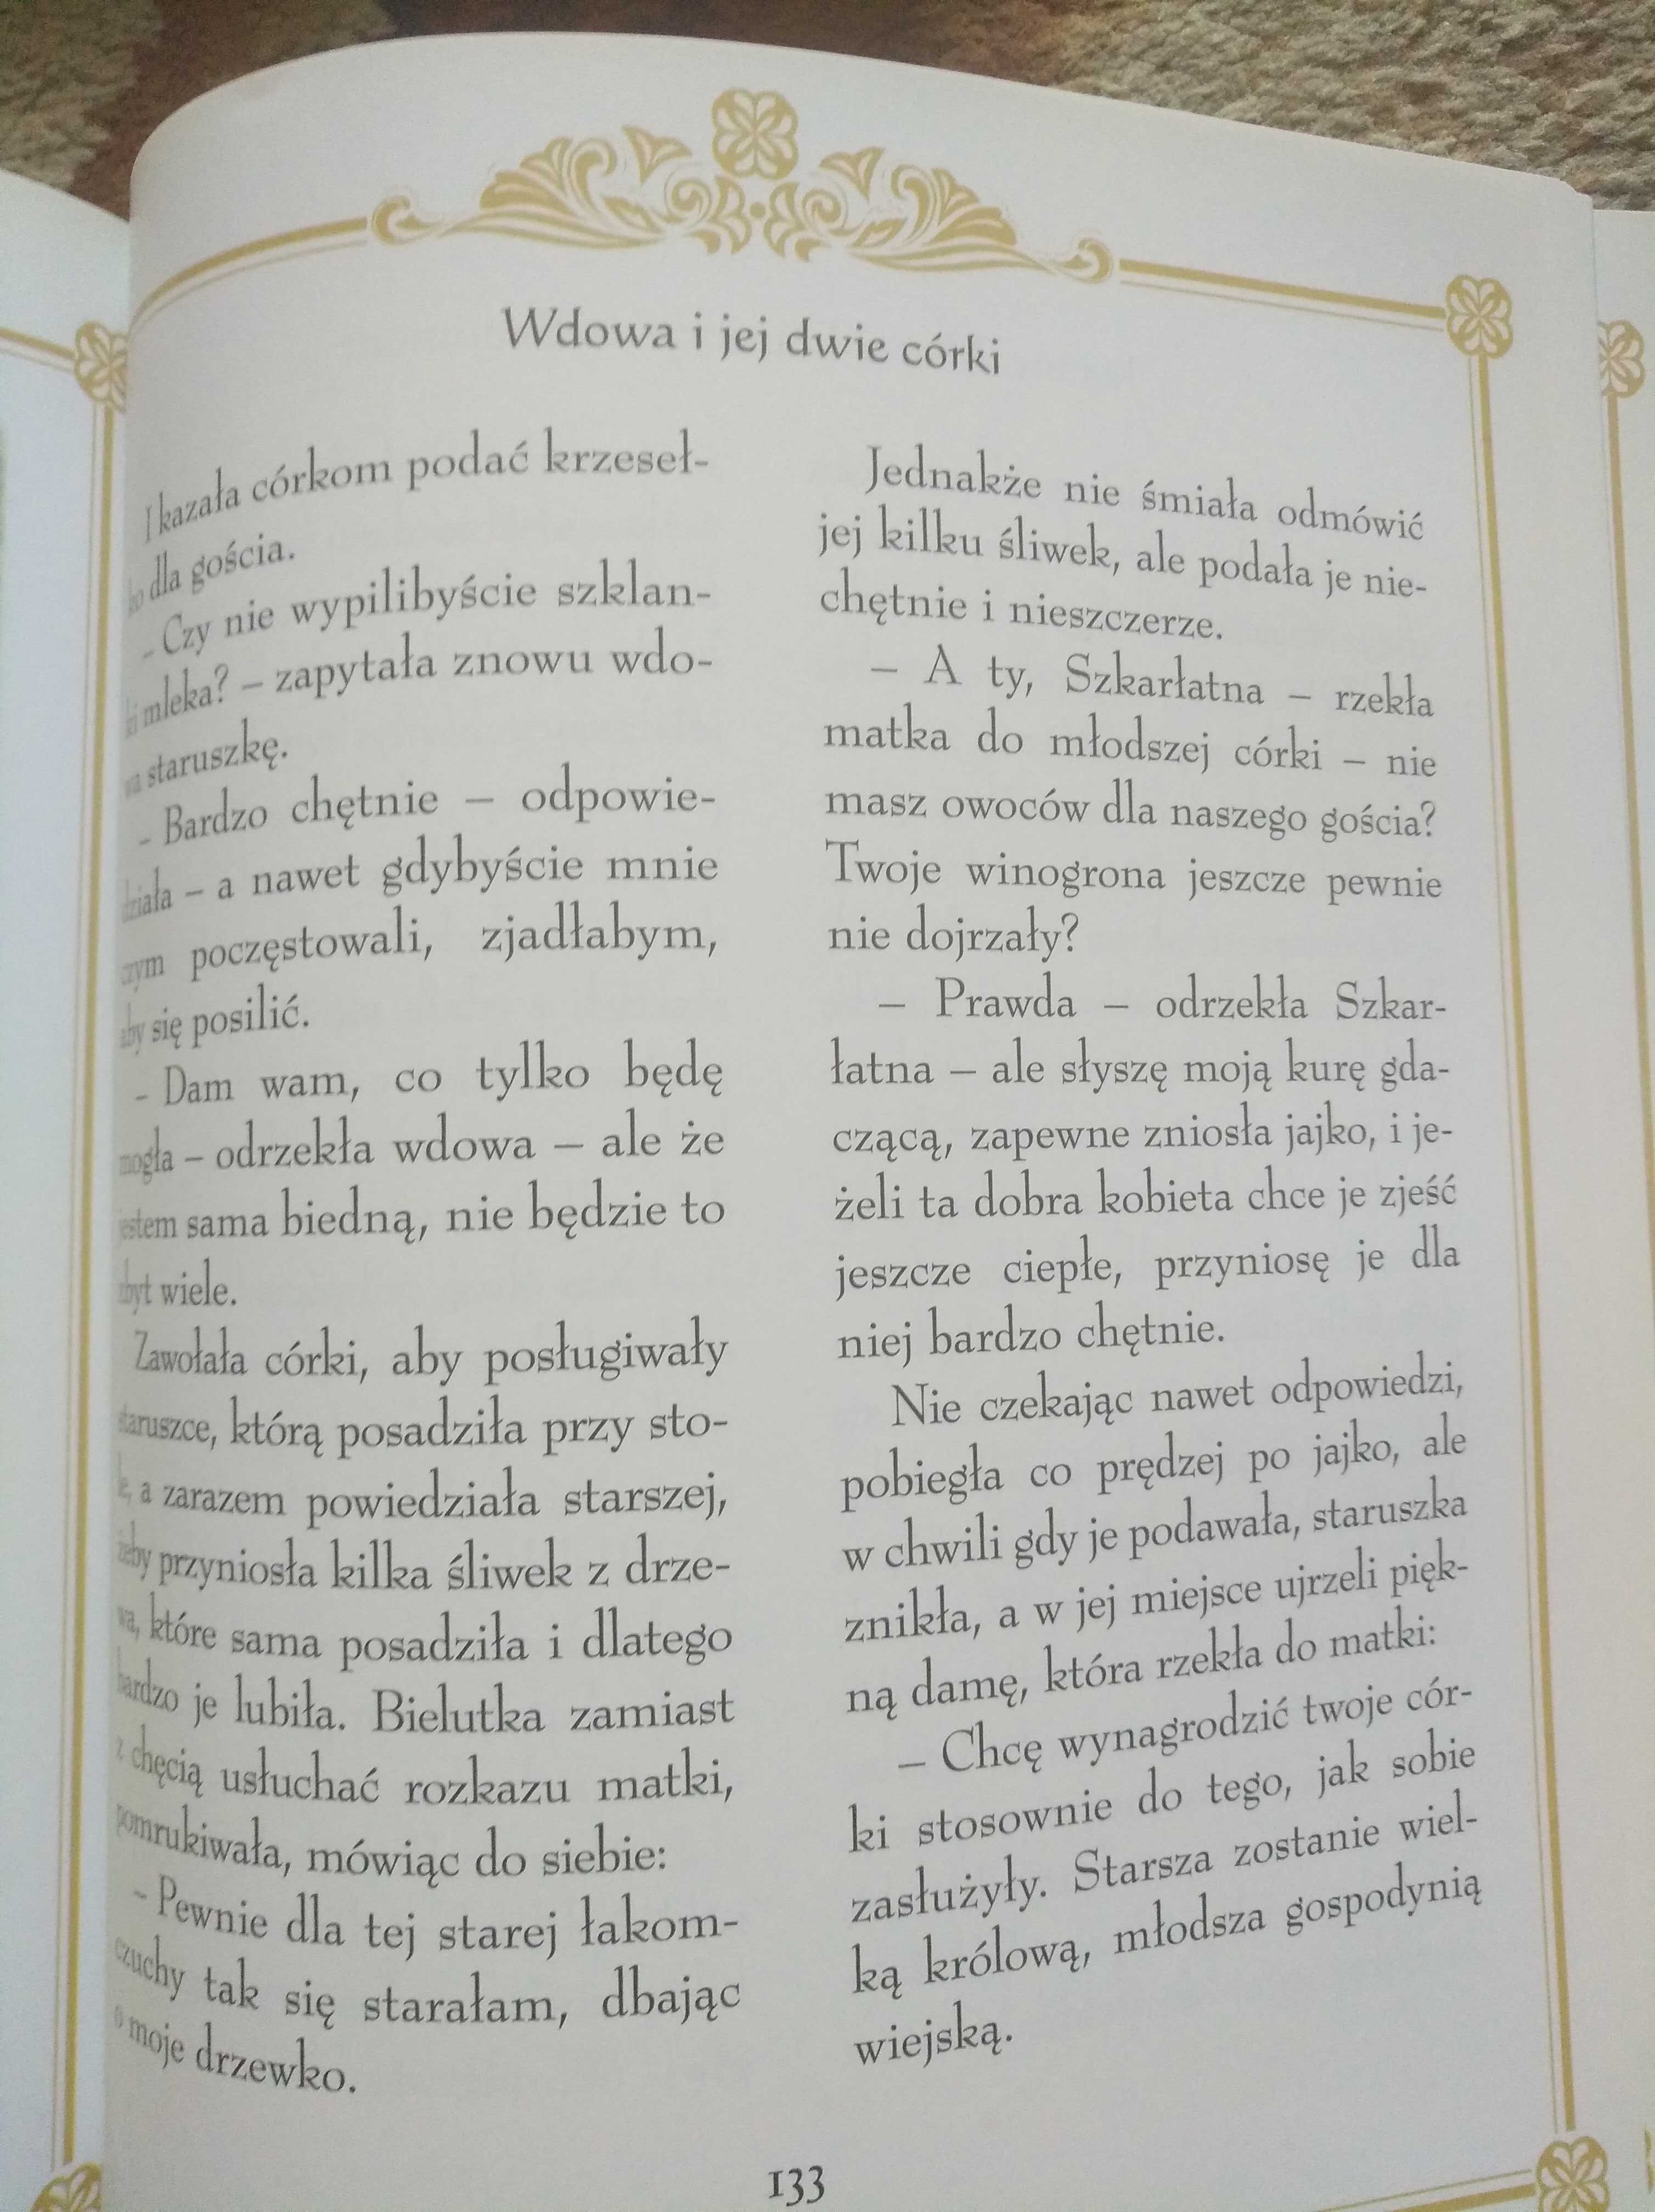 Wdowa i jej dwie córki
I kazała córkom podać krzeseł-
ko dla gościa.
– Czy nie wypilibyście szklan-
ki mleka? – zapytała znowu wdo-
wa staruszkę.
– Bardzo chętnie – odpowie-
działa – a nawet gdybyście mnie
czym poczęstowali, zjadłabym,
aby się posilić.
– Dam wam, co tylko będę
mogła – odrzekła wdowa – ale że
jestem sama biedną, nie będzie to
zbyt wiele.
Zawołała córki, aby posługiwały
staruszce, którą posadziła przy sto-
le, a zarazem powiedziała starszej,
żeby przyniosła kilka śliwek z drze-
wa, które sama posadziła i dlatego
bardzo je lubiła. Bielutka zamiast
z chęcią usłuchać rozkazu matki,
pomrukiwała, mówiąc do siebie:
– Pewnie dla tej starej łakom-
czuchy tak się starałam, dbając
o moje drzewko.
Jednakże nie śmiała odmówić
jej kilku śliwek, ale podała je nie-
chętnie i nieszczerze.
– A ty, Szkarłatna – rzekła
matka do młodszej córki – nie
masz owoców dla naszego gościa?
Twoje winogrona jeszcze pewnie
nie dojrzały?
– Prawda – odrzekła Szkar-
łatna – ale słyszę moją kurę gda-
czącą, zapewne zniosła jajko, i je-
żeli ta dobra kobieta chce je zjeść
jeszcze ciepłe, przyniosę je dla
niej bardzo chętnie.
Nie czekając nawet odpowiedzi,
pobiegła co prędzej po jajko, ale
w chwili gdy je podawała, staruszka
znikła, a w jej miejsce ujrzeli pięk-
ną damę, która rzekła do matki:
– Chcę wynagrodzić twoje cór-
ki stosownie do tego, jak sobie
zasłużyły. Starsza zostanie wiel-
ką królową, młodsza gospodynią
wiejską.
133